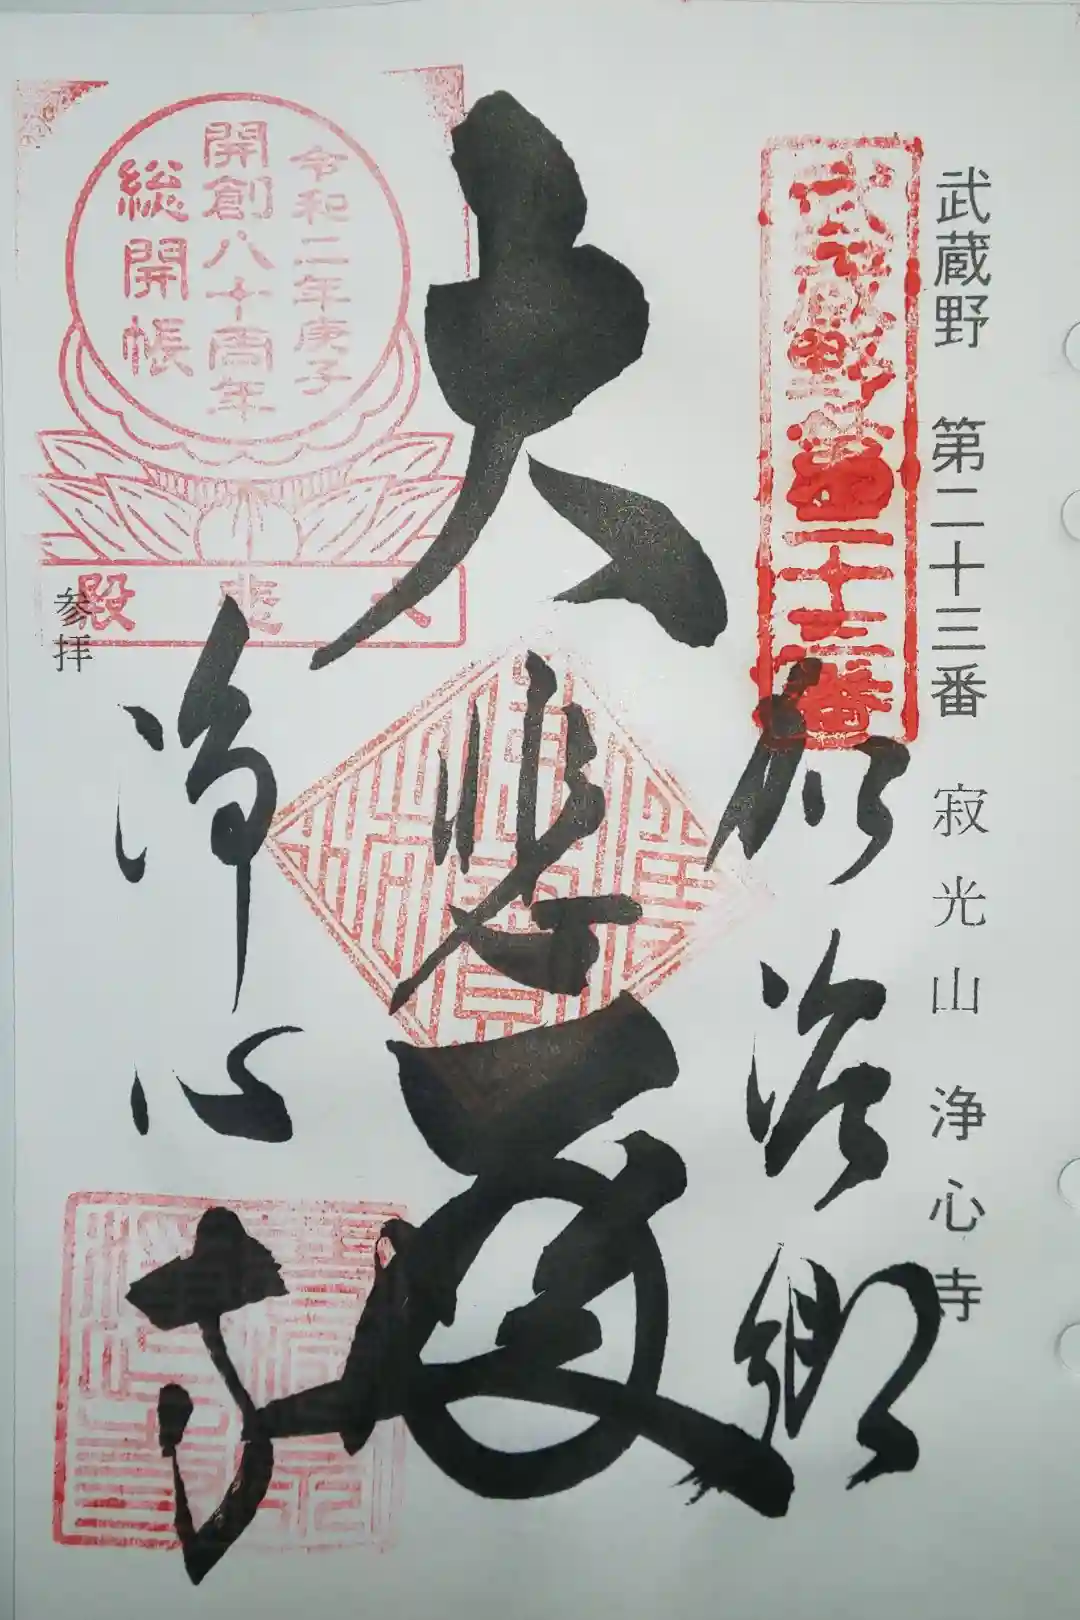 武蔵野 第二十三番 寂光山 浄心寺
武蔵野第二十三番
加治郷
大悲殿
令和二年庚子
開創八十周年
総開帳
大悲殿
参拝
浄心寺